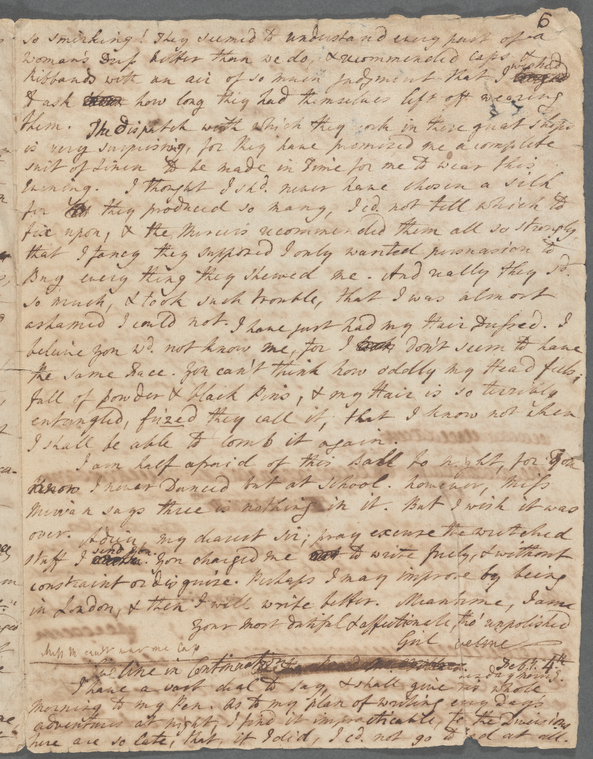 6
so smirking! They seemed to understand every part of a
woman's dress better than we do, & recommended caps &
Ribbands with an air of so much judgment that I wished
to ask how long they had themselves left off wearing
them. The dispatch with which they work in these great shops
is very surprising, for they have promised me a compleat
suit of Linen to be made in Time for me to wear this
Evening. I thought I shd. never have chosen a silk
for they produced so many, I cd. not tell which to
fix upon, & the Mercers recommended them all so strongly,
that I fancy they supposed I only wanted persuasion to
Buy every thing they shewed me. And really they sd.
so much, & took such trouble, that I was almost
ashamed I could not. I have just had my Hair dressed. I
believe you wd. not know me, for I don't seem to have
the same Face. You can't think how oddly my Head feels;
full of powder & black Pins, & my Hair is so terribly
entangled, frized they call it, that I know not when
I shall be able to comb it again.
I am half afraid of this Ball to night, for you
know I never Danced but at School. however, Miss
Mirvan says there is nothing in it. But I wish it was
over. Adieu, my dearest Sir; pray excuse the wretched
stuff I send you. You charged me to write freely, & without
constraint or disguise. Perhaps I may improve by being
in London, & then I will write better. Meantime, I am
Your most dutiful & affectionate tho' unpolished
Girl Eveline
Eveline in continuation Feb. 4th
I have a vast deal to say, & shall give the whole
morning to my Pen. As to my plan of writing every Day's
adventures at night I find it impracticable for the Diversions
here are so late, that, if I did, I cd. not go to Bed at all.